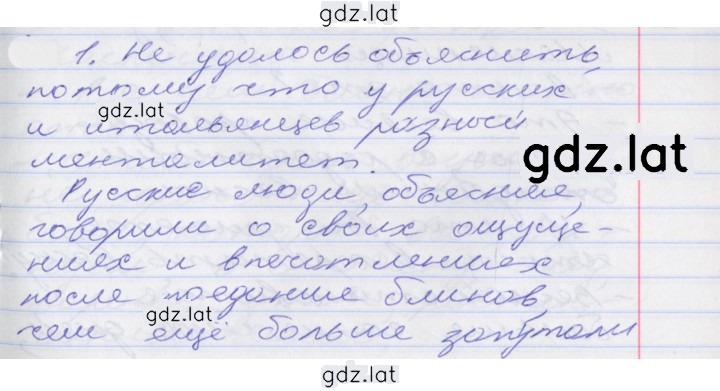 gdz.lat
1. Не удалось объяснить,
потому что у русских
gdz.lat
и итальянцев разный
gdz.lat
менталитет.
Русские люди, объясняя,
говорили о своих ощуще-
ниях и впечатлениях
после поедания блинов,
gdz.lat
чем ещё больше запутали
gdz.lat